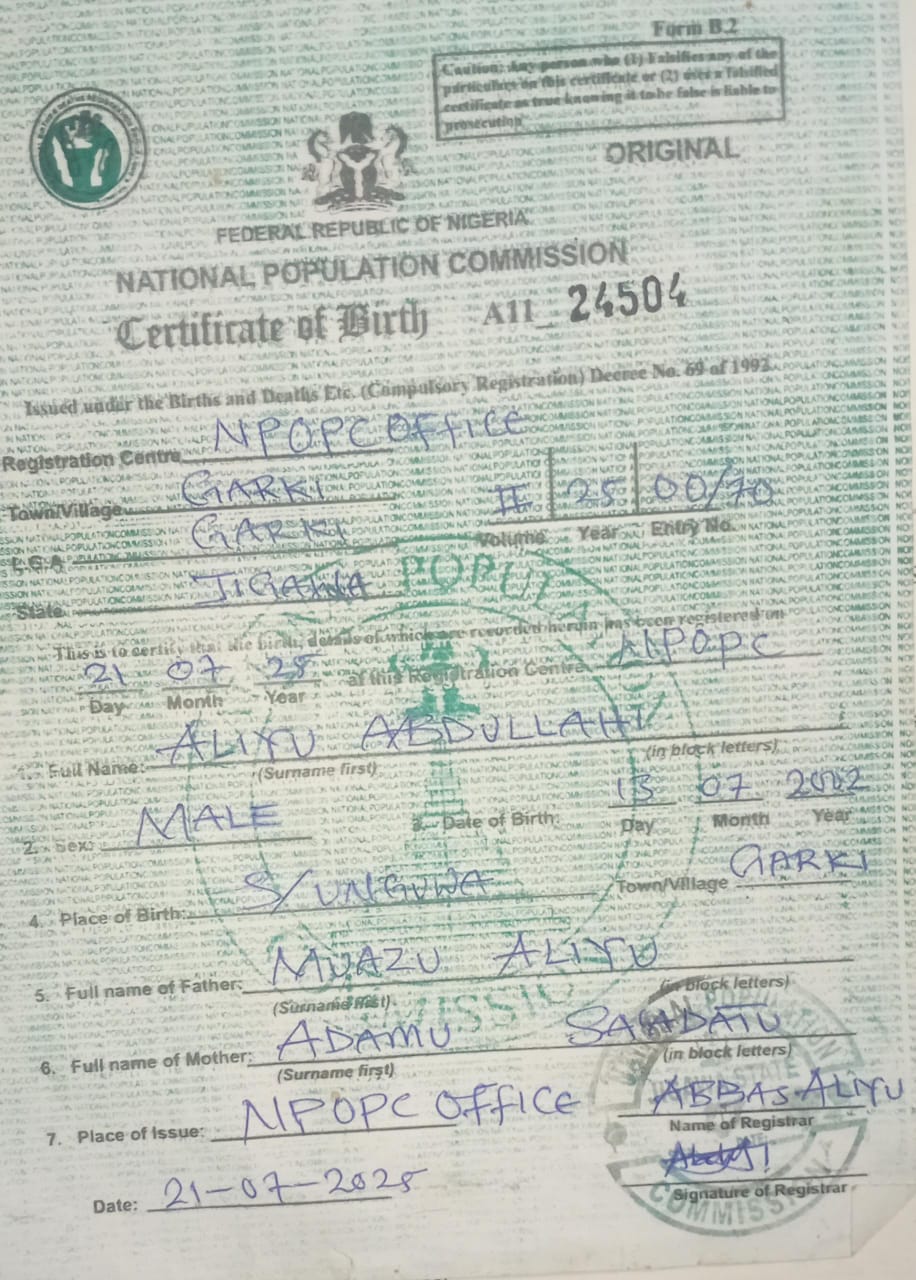 Form B.2
Caution: Any person who (1) Falsifies any of the
particulars on this certificate or (2) uses a falsified
certificate as true knowing it to be false is liable to
prosecution
ORIGINAL
FEDERAL REPUBLIC OF NIGERIA
NATIONAL POPULATION COMMISSION
Certificate of Birth A11_ 24504
Issued under the Births and Deaths Etc. (Compulsory Registration) Decree No. 69 of 1992
Registration Centre NPOPC OFFICE
Town/Village GARKI
L.G.A GARKI
State JIGAWA
II 25 00/70
Volume Year Entry No.
This is to certify that the birth, details of which are recorded herein has been registered on
21 07 25 at this Registration Centre NPOPC
Day Month Year
1. Full Name: ALIYU ABDULLAHI
(Surname first) (in block letters)
2. Sex: MALE 3. Date of Birth: 13 07 2002
Day Month Year
4. Place of Birth: S/UNGUWA Town/Village GARKI
5. Full name of Father: MUAZU ALIYU
(Surname first) (in block letters)
6. Full name of Mother: ADAMU SAADATU
(Surname first) (in block letters)
7. Place of Issue: NPOPC OFFICE ABBAS ALIYU
Name of Registrar
Date: 21-07-2025
Signature of Registrar